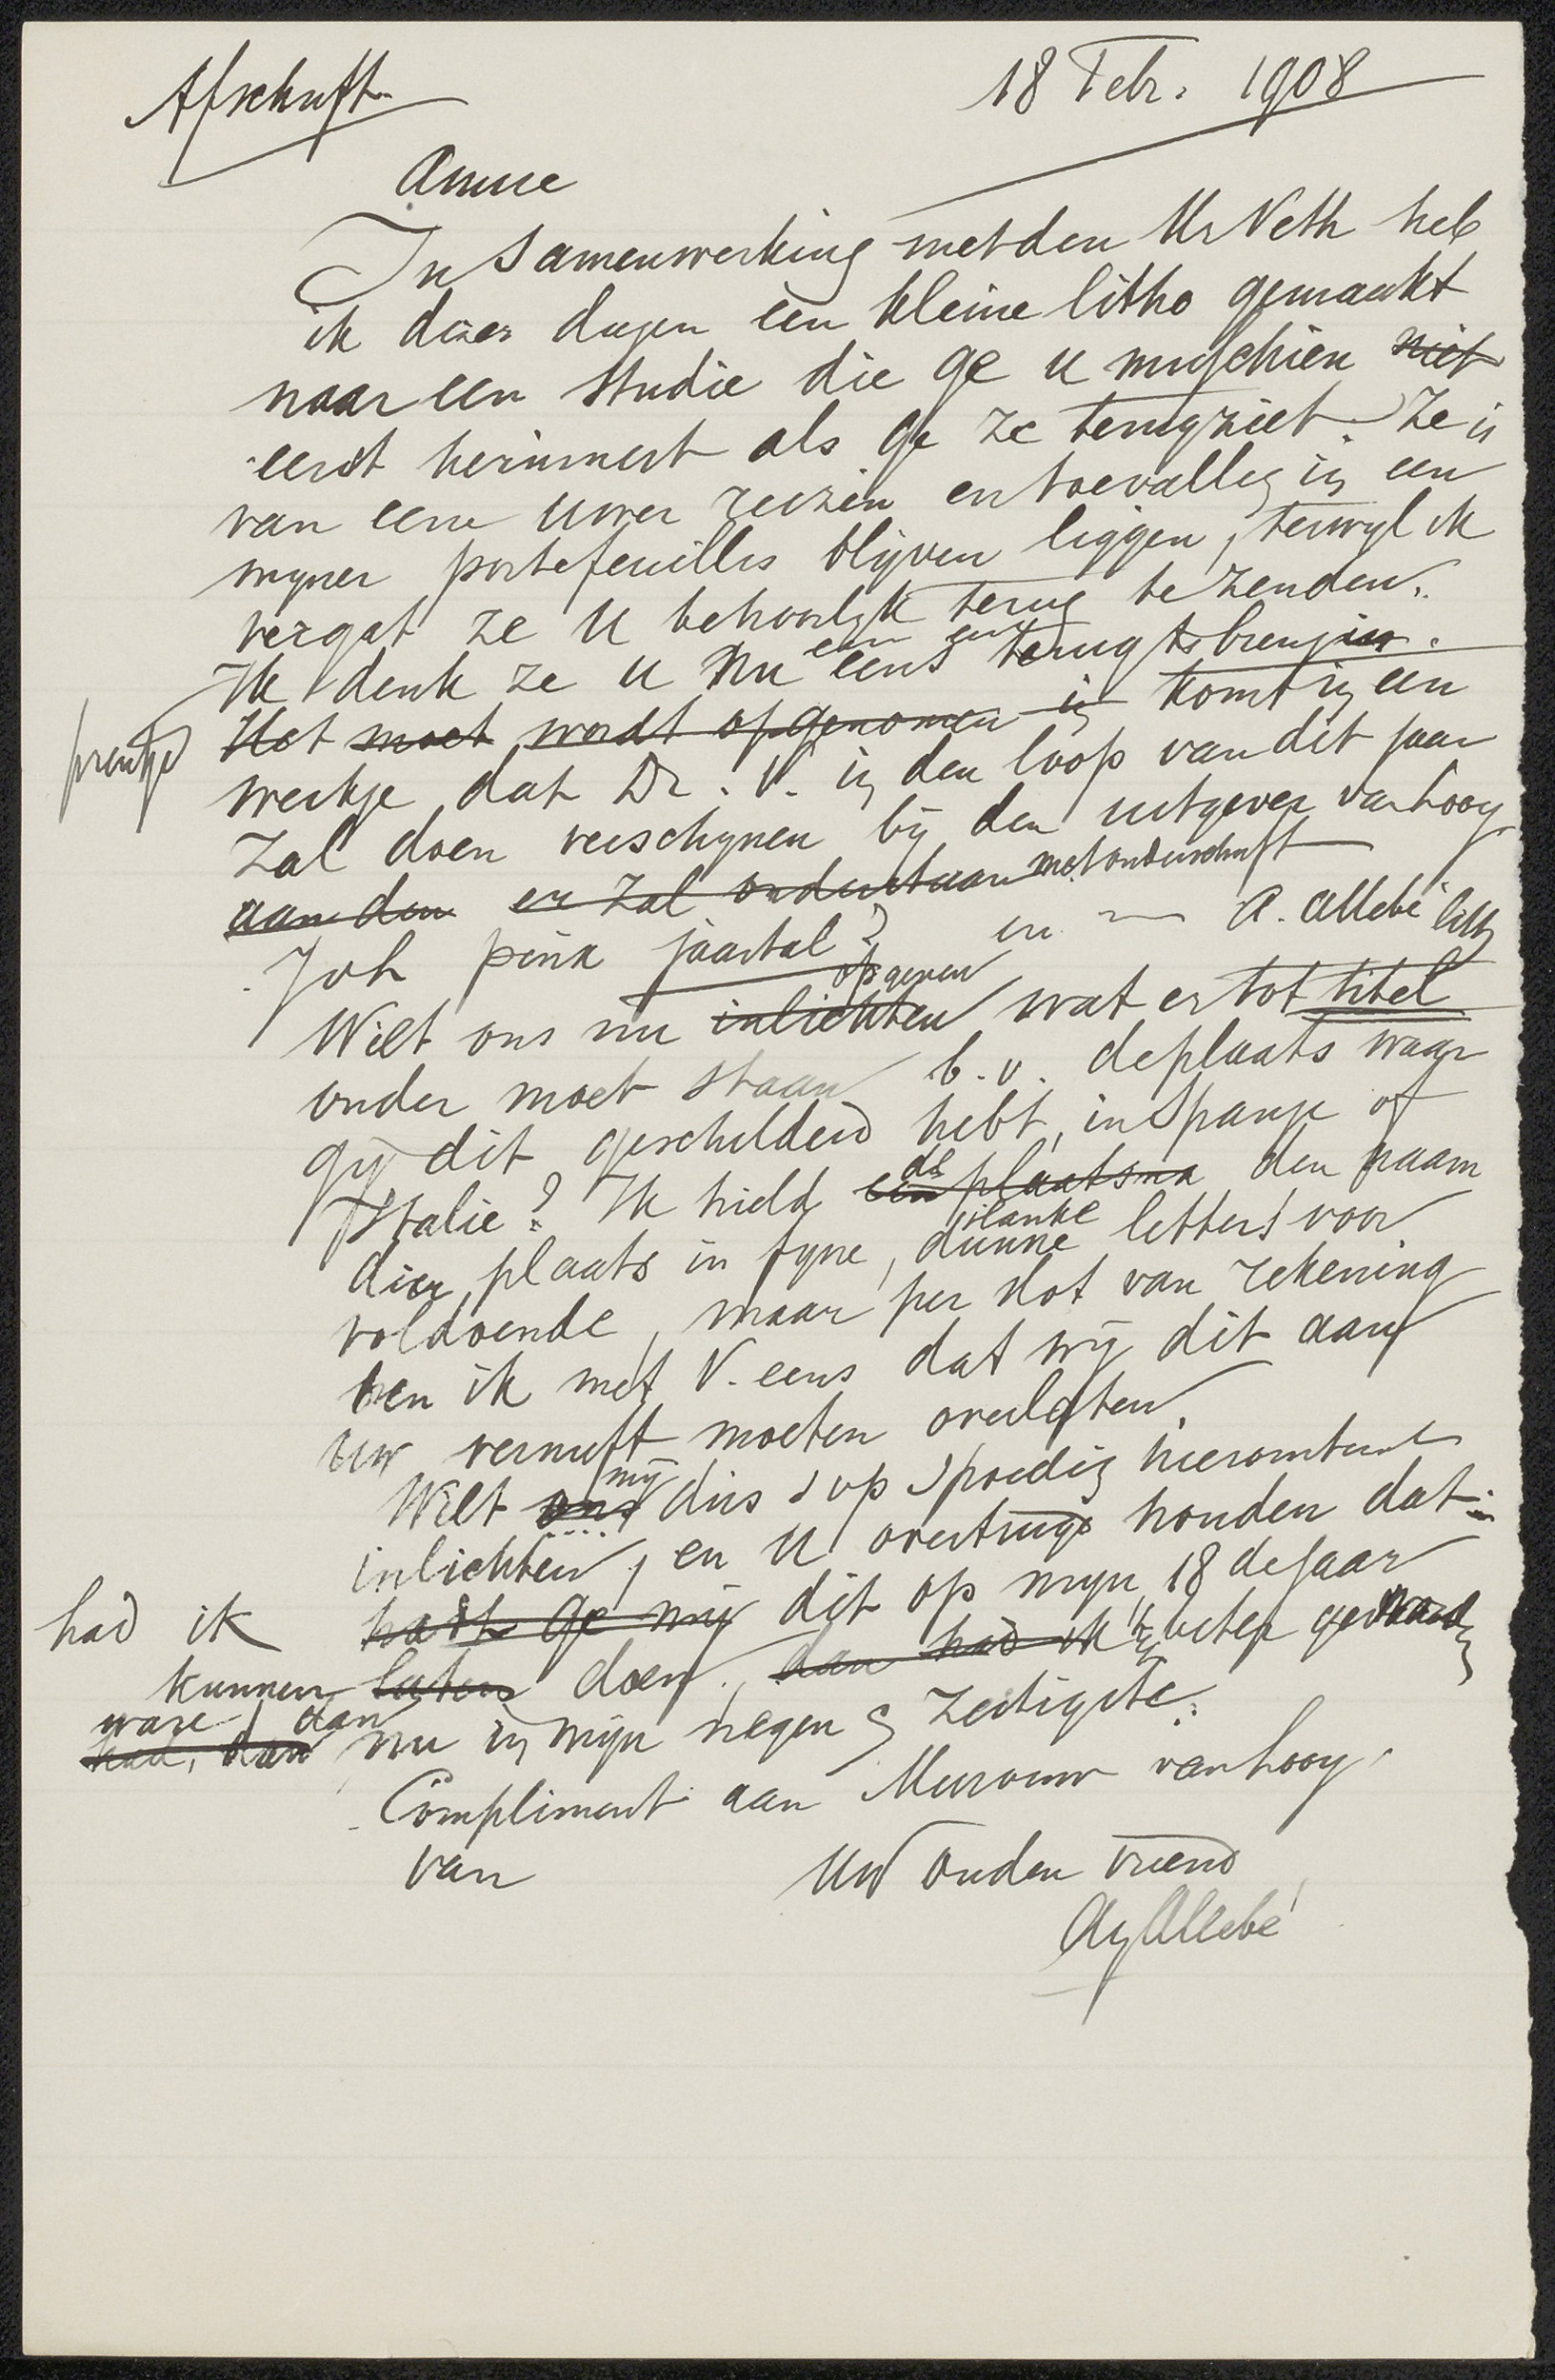 Afschrift
18 Febr. 1908
Amice
In samenwerking met den Hr Veth heb
ik dezer dagen een kleine litho gemaakt
naar een studie die ge u misschien niet
eerst herinnert als ge ze terugziet. Ze is
van eene uwer reizen en toevallig in een
mijner portefeuilles blijven liggen, terwijl ik
vergat ze u behoorlijk terug te zenden.
Ik denk ze u nu eens terug te brengen.
prentje
Het moet wordt opgenomen in komt in een
werkje dat Dr. V. in den loop van dit jaar
zal doen verschijnen bij den uitgever van Looy
aan den er zal onderstaan met onderschrift
Joh pinx jaartal? en — A. Allebé lith
opgeven
Wilt ons nu inlichten wat er tot titel
onder moet staan b.v. de plaats waar
gij dit geschilderd hebt, in Spanje of
de
Italie? Ik hield een plaatsna den naam
slanke
dier plaats in fijne, dunne letters voor
voldoende, maar per slot van rekening
ben ik met V. eens dat wij dit aan
uw vernuft moeten overlaten.
mij
Wilt ons dus s op spoedig hieromtrent
inlichten, en u overtuigd houden dat
had ik
hadt ge mij dit op mijn 18de jaar
kunnen laten doen, dan had ik 't beter gedaan
ware dan
had, dan nu in mijn negen & zestigste.
Compliment aan Mevrouw van Looy
van uw ouden vriend
Ag Allebé